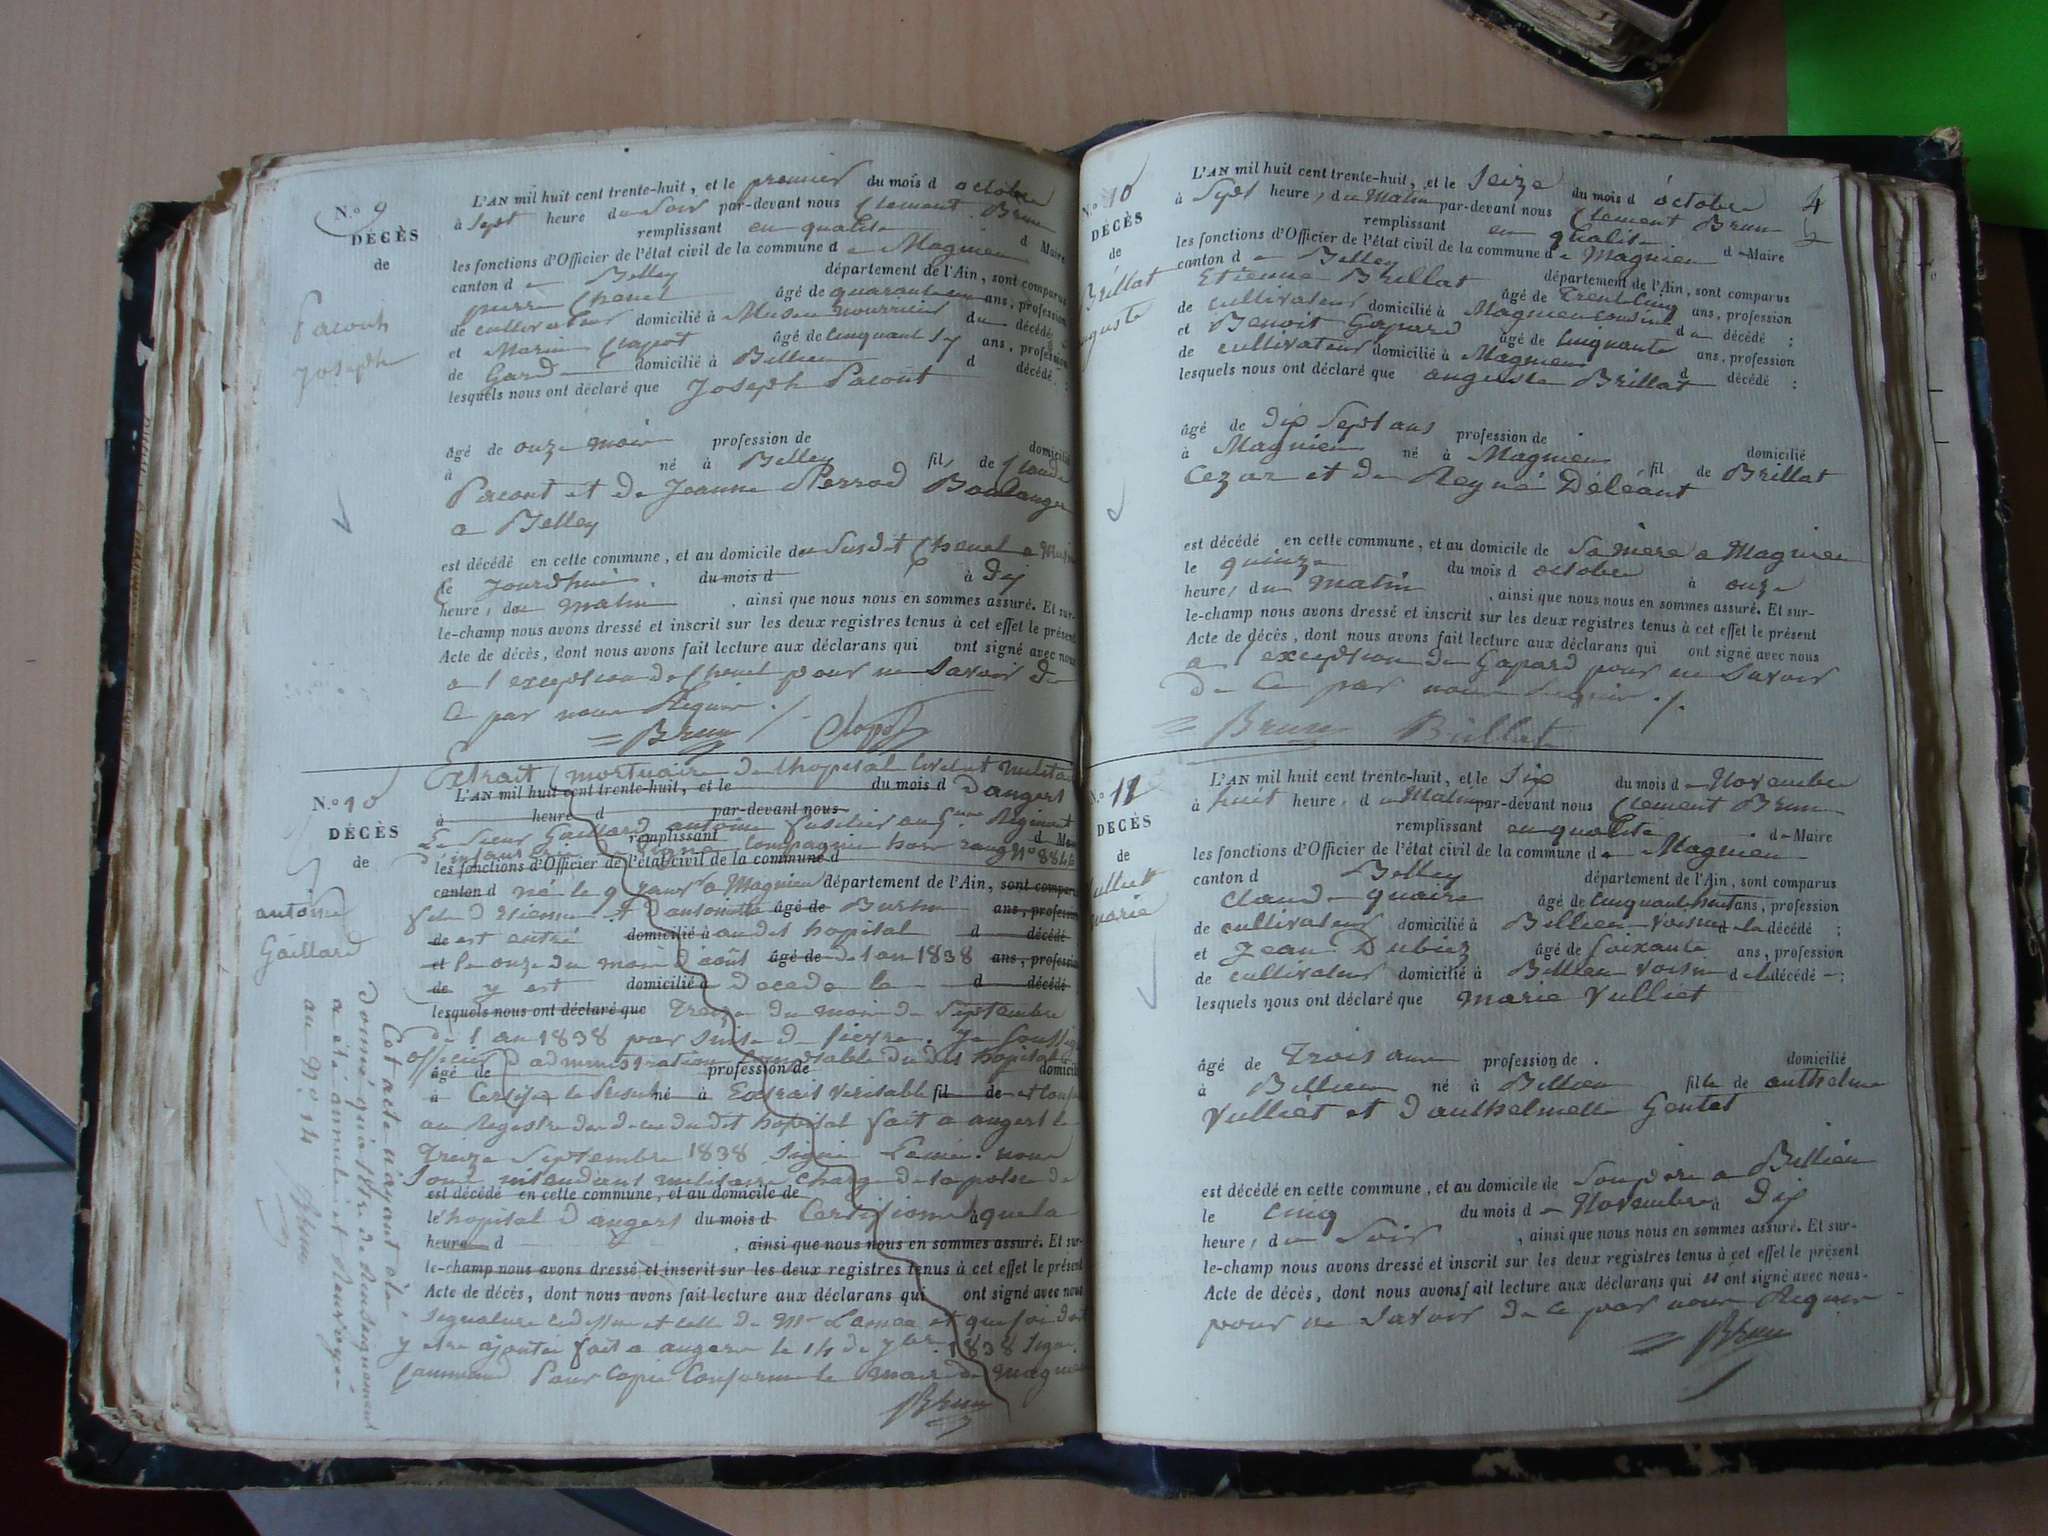 N.o 9
DÉCÈS
de
Pacout
Joseph
L'AN mil huit cent trente-huit, et le premier du mois d octobre
à Sept heure du Soir par-devant nous Clement Brun
remplissant en qualité d Maire
les fonctions d'Officier de l'état civil de la commune de Magnieu
canton de Belley département de l'Ain, sont comparus
pierre Chenel âgé de quarante ans, profession
de cultivateur domicilié à Musin nourricier du décédé
et Marin Clapot âgé de Cinquant ans, profession
de Gard domicilié à Billieu d décédé :
lesquels nous ont déclaré que Joseph Pacout
âgé de onze mois profession de domicilié
à né à Belley fils de Claude
Pacout et de Jeanne Perrod Boulanger
a Belley
est décédé en cette commune, et au domicile du Susdit Chenel a
le Jourdhui du mois d à Dix
heure, du matin , ainsi que nous nous en sommes assuré. Et sur-
le-champ nous avons dressé et inscrit sur les deux registres tenus à cet effet le présent
Acte de décès, dont nous avons fait lecture aux déclarans qui ont signé avec nous
a l exception de Chenel pour ne Savoir de
Ce par nous Requis ./.
Brun Clapot
N.o 10
DÉCÈS
de
antoine
Gaillard
Cet acte n'ayant été
donné qu'a titre de Renseignement
a été annulé et Renvoyé
au N.o 14
Brun
Extrait mortuaire de lhopital Civil et militaire
L'AN mil huit cent trente-huit, et le du mois d Dangers
à heure d par-devant nous
Le Sieur Gaillard antoine fusilier au 5me Régiment
remplissant d Maire
d'infanterie Compagnie hors rang N.o
les fonctions d'Officier de l'état civil de la commune d
canton d né le 9 Janvr a Magnieu département de l'Ain, sont comparus
fils d Etienne et d antoinette âgé de Burtin ans, profession
de est entré domicilié à audit hopital d décédé
et le onze du mois d août âgé de de l an 1838 ans, profession
de y est domicilié à décédé le d décédé
lesquels nous ont déclaré que Treize du mois de Septembre
de l an 1838 par Suite de fievre. Je Soussigné
officier d administration Comptable dudit hopital
âgé de profession de domicilié
à Certifie le présent né à Extrait veritable fil de et conforme
au Registre des deces dudit hopital fait a angers le
Treize Septembre 1838 Signé nous
Sous intendant militaire Chargé de la police de
est décédé en cette commune, et au domicile de
le l'hopital d angers du mois d Certifions à que la
heure d , ainsi que nous nous en sommes assuré. Et sur-
le-champ nous avons dressé et inscrit sur les deux registres tenus à cet effet le présent
Acte de décès, dont nous avons fait lecture aux déclarans qui ont signé avec nous
Signature cidessus est celle de Mr et que foi doit
y etre ajoutée fait a angers le 14 de 7bre 1838 Signé
Pour Copie Conforme le Maire de Magnieu
Brun
4
N.o 10
DÉCÈS
de
Brillat
auguste
L'AN mil huit cent trente-huit, et le Seize du mois d octobre
à Sept heure, du Matin par-devant nous Clement Brun
remplissant en qualité d Maire
les fonctions d'Officier de l'état civil de la commune de Magnieu
canton de Belley département de l'Ain, sont comparus
Etienne Brillat âgé de Trente cinq ans, profession
de cultivateur domicilié à Magnieu cousin du décédé ;
et Benoit Gapard âgé de Cinquante ans, profession
de cultivateur domicilié à Magnieu d décédé :
lesquels nous ont déclaré que auguste Brillat
âgé de Dix Sept ans profession de domicilié
à Magnieu né à Magnieu fil de Brillat
Cezar et de Reyné Déléant
est décédé en cette commune, et au domicile de Sa mere a Magnieu
le quinze du mois d octobre à onze
heure, du matin , ainsi que nous nous en sommes assuré. Et sur-
le-champ nous avons dressé et inscrit sur les deux registres tenus à cet effet le présent
Acte de décès, dont nous avons fait lecture aux déclarans qui ont signé avec nous
a l exception de Gapard pour ne Savoir
De Ce par nous Requis ./.
Brun Brillat
N.o 11
DÉCÈS
de
Vulliet
marie
L'AN mil huit cent trente-huit, et le Six du mois de Novembre
à huit heure, du Matin par-devant nous Clement Brun
remplissant en qualité de Maire
les fonctions d'Officier de l'état civil de la commune de Magnieu
canton d Belley département de l'Ain, sont comparus
Claude quaire âgé de Cinquant huit ans, profession
de cultivateur domicilié à Billieu voisin de la décédé ;
et Jean Dubiez âgé de Soixante ans, profession
de cultivateur domicilié à Billieu voisin de la décédé :
lesquels nous ont déclaré que marie Vulliet
âgé de Trois ans profession de domicilié
à Billieu né à Billieu fille de anthelme
Vulliet et d'anthelmette Gentet
est décédé en cette commune, et au domicile de Son pere a Billieu
le Cinq du mois de Novembre à Dix
heure, du Soir , ainsi que nous nous en sommes assuré. Et sur-
le-champ nous avons dressé et inscrit sur les deux registres tenus à cet effet le présent
Acte de décès, dont nous avons fait lecture aux déclarans qui n ont signé avec nous
pour ne Savoir de Ce par nous Requis
Brun